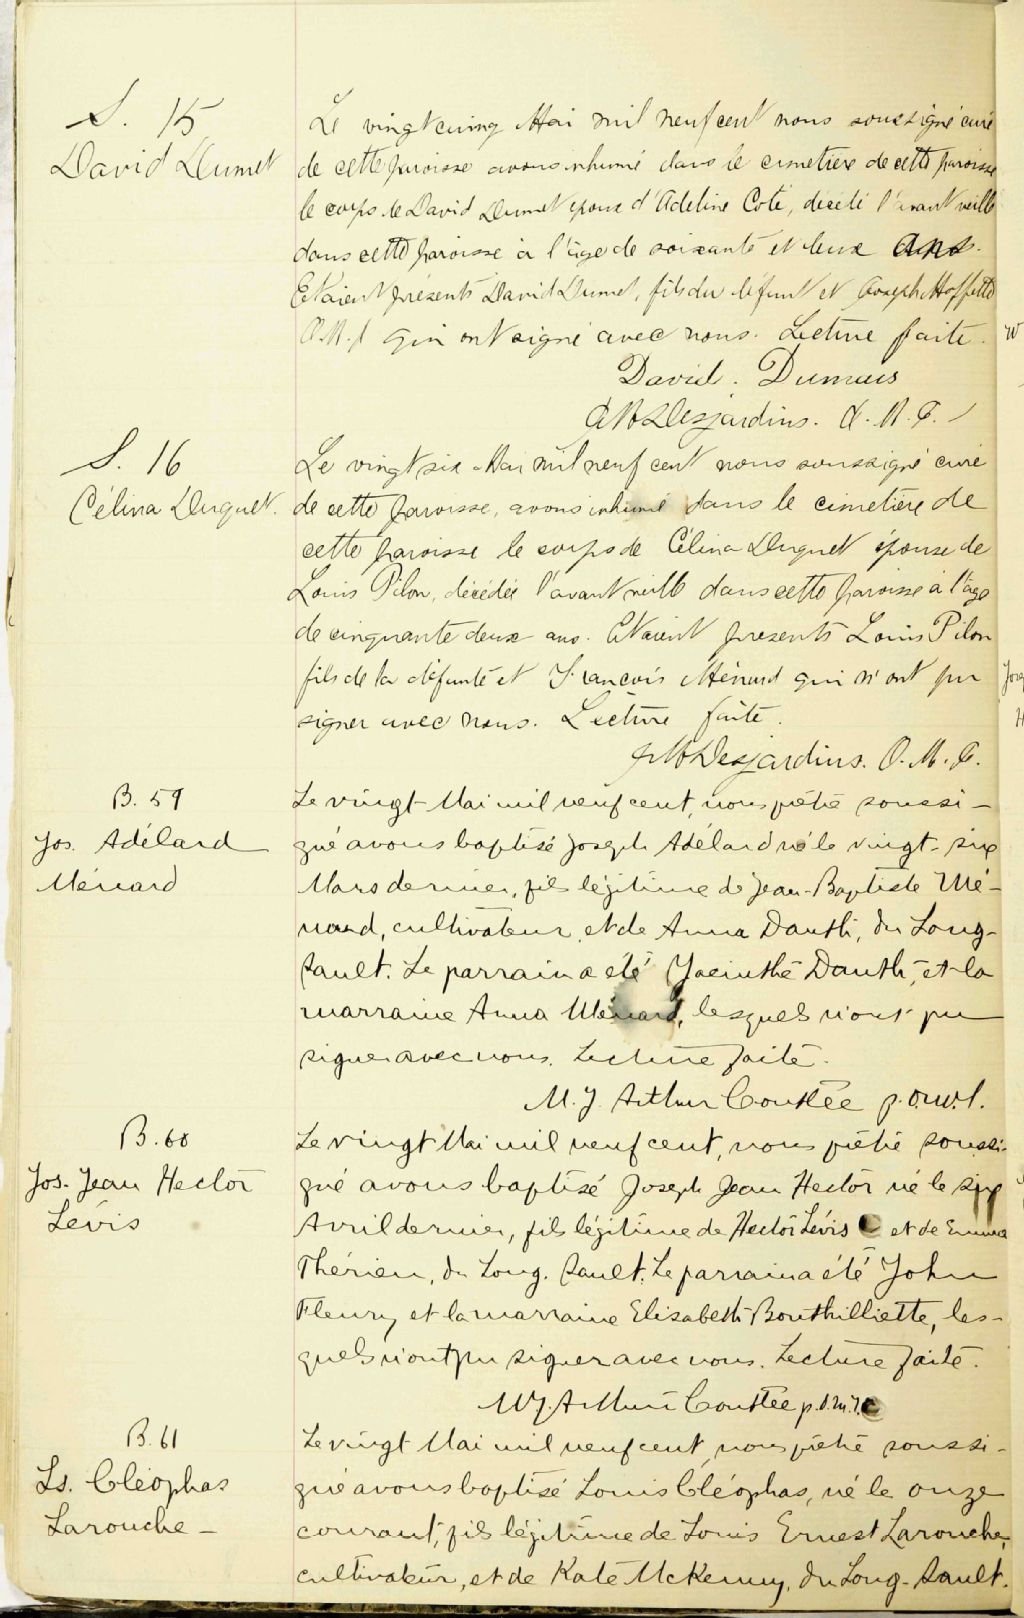 S. 15
David Dumet
Le vingt cinq Mai mil neuf cent nous soussigné curé
de cette paroisse avons inhumé dans le cimetière de cette paroisse
le corps de David Dumet époux d'Adeline Coté, décédé l'avant veille
dans cette paroisse à l'âge de soixante et deux ans.
Etaient présents David Dumet, fils du défunt et Joseph
qui ont signé avec nous. Lecture faite.
David. Dumais
Desjardins. O. M. I.
S. 16
Célina Duquet.
Le vingt six Mai mil neuf cent nous soussigné curé
de cette paroisse, avons inhumé dans le cimetière de
cette paroisse le corps de Célina Duquet épouse de
Louis Pilon, décédée l'avant veille dans cette paroisse à l'âge
de cinquante deux ans. Etaient présents Louis Pilon
fils de la défunte et François Ménard qui n'ont pu
signer avec nous. Lecture faite.
Desjardins. O. M. I.
B. 59
Jos. Adélard
Ménard
Le vingt Mai mil neuf cent, nous prêtre soussi-
gné avons baptisé Joseph Adélard né le vingt-six
Mars dernier, fils légitime de Jean-Baptiste Mé-
nard, cultivateur, et de Anna Danth, du Long-
Sault. Le parrain a été Hyacinthe Danth, et la
marraine Anna Ménard, lesquels n'ont pu
signer avec nous. Lecture faite.
M. J. Arthur Coutlée p. o.m.I.
B. 60
Jos. Jean Hector
Lévis
Le vingt Mai mil neuf cent, nous prêtre soussi-
gné avons baptisé Joseph Jean Hector né le six
Avril dernier, fils légitime de Hector Lévis et de Emma
Thérien, du Long-Sault. Le parrain a été John
Fleury et la marraine Elisabeth Bouthilliette, les-
quels n'ont pu signer avec nous. Lecture faite.
M.J. Arthur Coutlée p. o.m.I.
B. 61
Ls. Cléophas
Larouche -
Le vingt Mai mil neuf cent, nous prêtre soussi-
gné avons baptisé Louis Cléophas, né le onze
courant, fils légitime de Louis Ernest Larouche,
cultivateur, et de Kate McKenny, du Long-Sault.